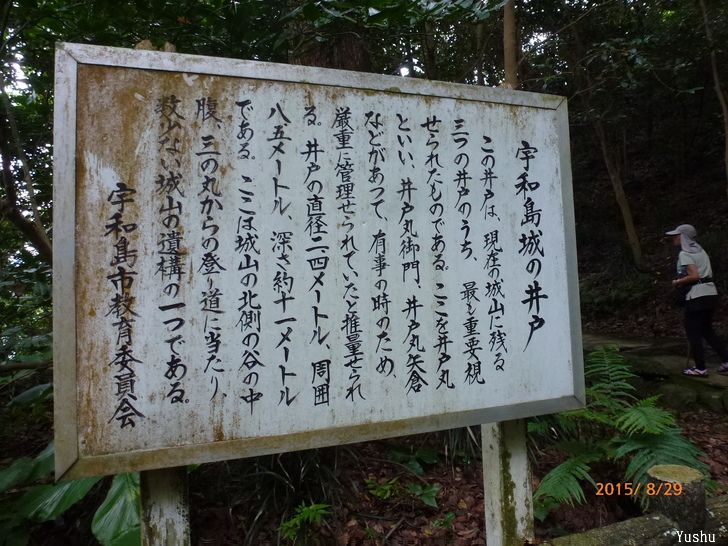 宇和島城の井戸
この井戸は、現在の城山に残る
三つの井戸のうち、最も重要視
せられたものである。ここを井戸丸
といい、井戸丸御門、井戸丸矢倉
などがあつて、有事の時のため、
厳重に管理せられていたと推量せられ
る。井戸の直径二.四メートル、周囲
八.五メートル、深さ約十一メートル
である。ここは城山の北側の谷の中
腹、三の丸からの登り道に当たり、
数少ない城山の遺構の一つである。
宇和島市教育委員会
2015/ 8/29
Yushu